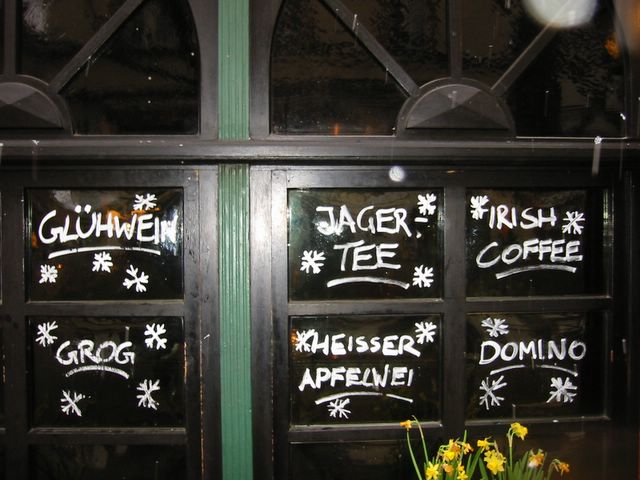 GLÜHWEIN
JAGER-
TEE
IRISH
COFFEE
GROG
HEISSER
APFELWEI
DOMINO